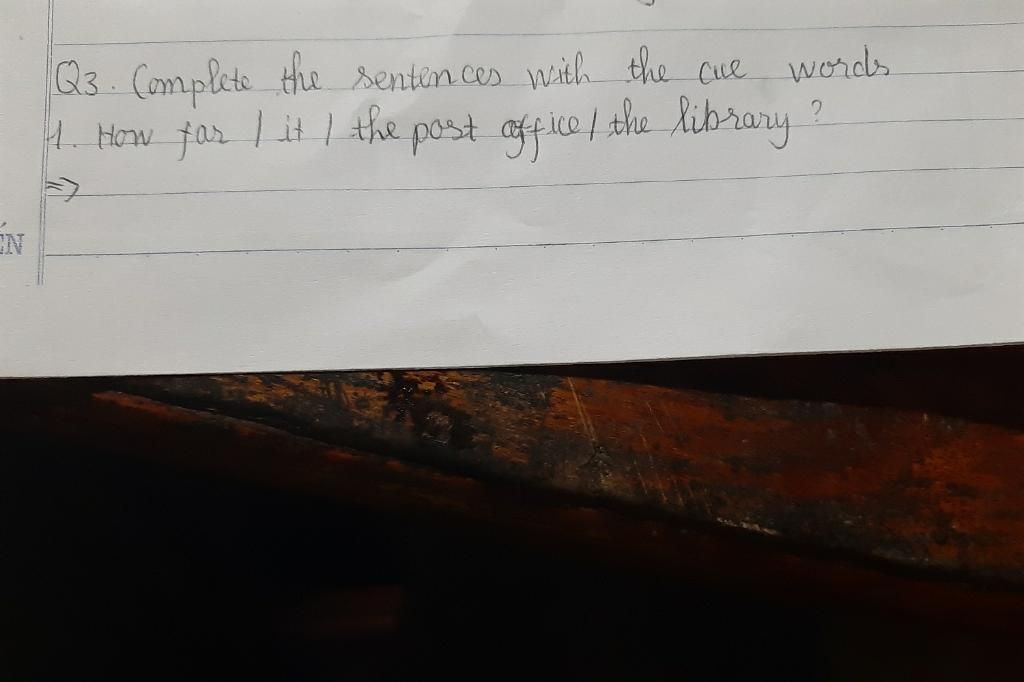 Q3. Complete the sentences with the cue words
1. How far / it / the post office / the library ?
=>
ÉN